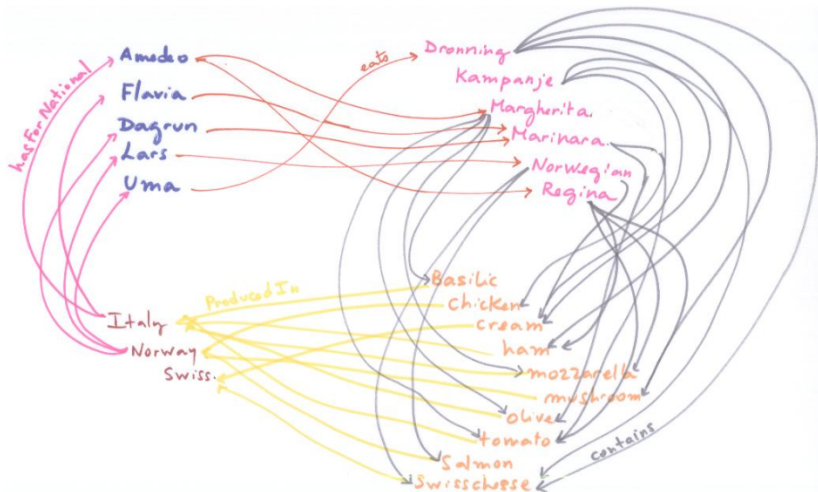 Amedeo
Flavia
Dagrun
Lars
Uma
hasForNational
eats
Dronning
Kampanje
Margherita
Marinara
Norwegian
Regina
Italy
Norway
Swiss.
Produced In
Basilic
Chicken
cream
ham
mozzarella
mushroom
olive
tomato
Salmon
Swisscheese
contains